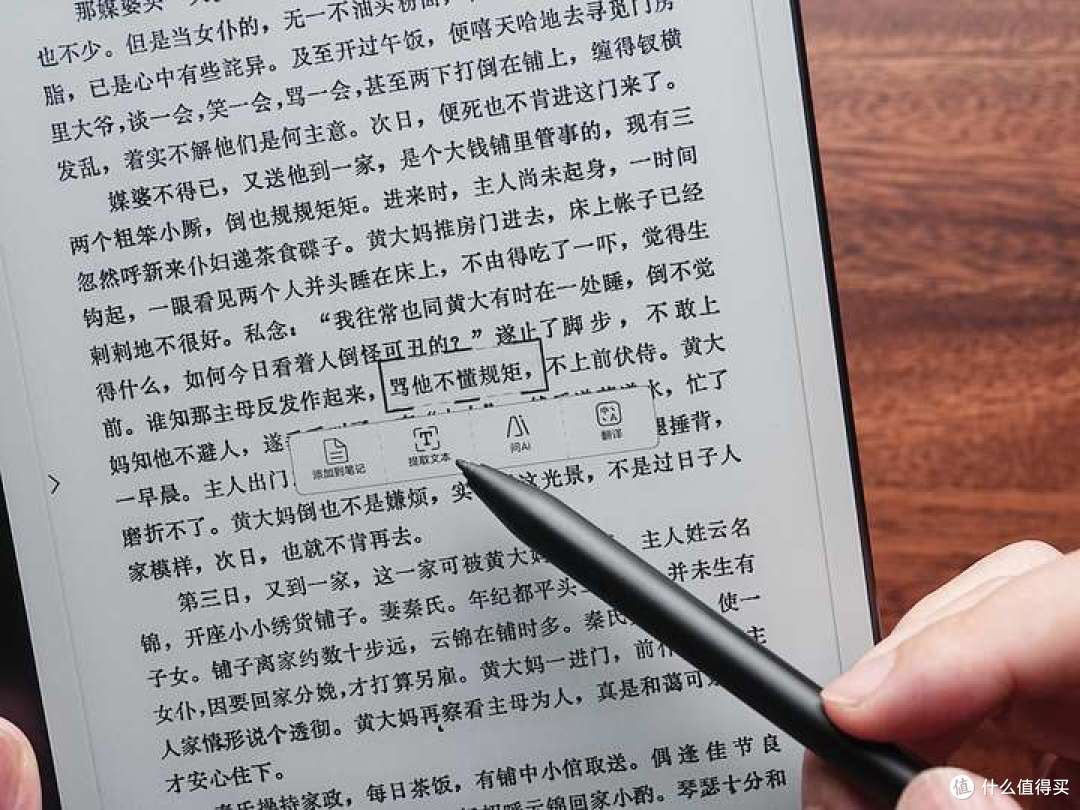 那媒婆
也不少。但是当女仆的，无一不油头粉面，
脂，已是心中有些詫异。及至开过午饭，便嘻天哈地去寻觅门房
里大爷，谈一会，笑一会，骂一会，甚至两下打倒在铺上，缠得钗横
发乱，着实不解他们是何主意。次日，便死也不肯进这门来了。
媒婆不得已，又送他到一家，是个大钱铺里管事的，现有三
两个粗笨小厮，倒也规规矩矩。进来时，主人尚未起身，一时间
忽然呼新来仆妇递茶食碟子。黄大妈推房门进去，床上帐子已经
钩起，一眼看见两个人并头睡在床上，不由得吃了一吓，觉得生
刺刺地不很好。私念：“我往常也同黄大有时在一处睡，倒不觉
得什么，如何今日看着人倒怪可丑的？”遂止了脚步，不敢上
前。谁知那主母反发作起来，骂他不懂规矩，不上前伏侍。黄大
妈知他不避人，遂 水，忙了
一早晨。主人出门 捶背，
磨折不了。黄大妈倒也不是嫌烦，实 这光景，不是过日子人
家模样，次日，也就不肯再去。
第三日，又到一家，这一家可被黄大妈 主人姓云名
锦，开座小小绣货铺子。妻秦氏。年纪都平头 并未生有
子女。铺子离家约数十步远，云锦在铺时多。秦氏 使一
女仆，因要回家分娩，才打算另雇。黄大妈一进门，前 主
人家情形说个透彻。黄大妈再察看主母为人，真是和蔼可
才安心住下。
秦氏操持家政，每日茶饭，有铺中小倌取送。偶逢佳节良
云锦回家小酌。琴瑟十分和
添加到笔记
提取文本
问AI
翻译
值 什么值得买